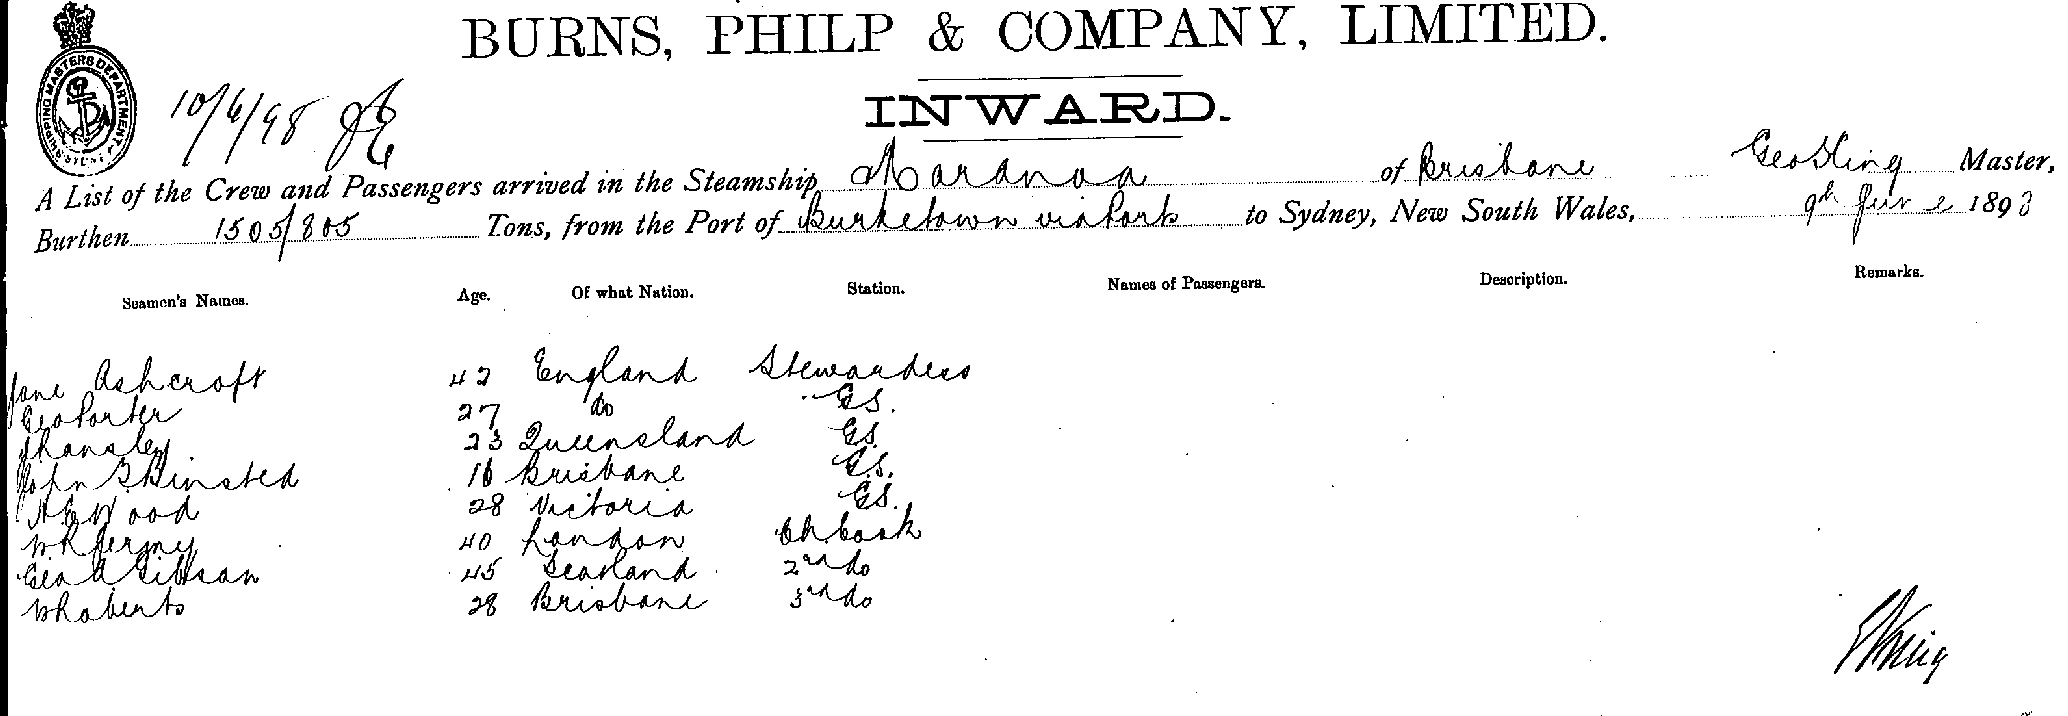 BURNS, PHILP & COMPANY, LIMITED.
SHIPPING MASTERS DEPARTMENT
10/6/98
INWARD.
A List of the Crew and Passengers arrived in the Steamship Maranoa of Brisbane Geo King Master,
Burthen 1505/805 Tons, from the Port of Burketown via Ports to Sydney, New South Wales, 9th June 1898
Seamen's Names. Age. Of what Nation. Station. Names of Passengers. Description. Remarks.
Jane Ashcroft 42 England Stewardess
Geo Porter 27 do G.S.
23 Queensland G.S.
John Binsted 16 Brisbane G.S.
A E Wood 28 Victoria G.S.
W R Jermy 40 London Ch Cook
Geo A Gibson 45 Scotland 2nd do
W Roberts 28 Brisbane 3rd do
G King